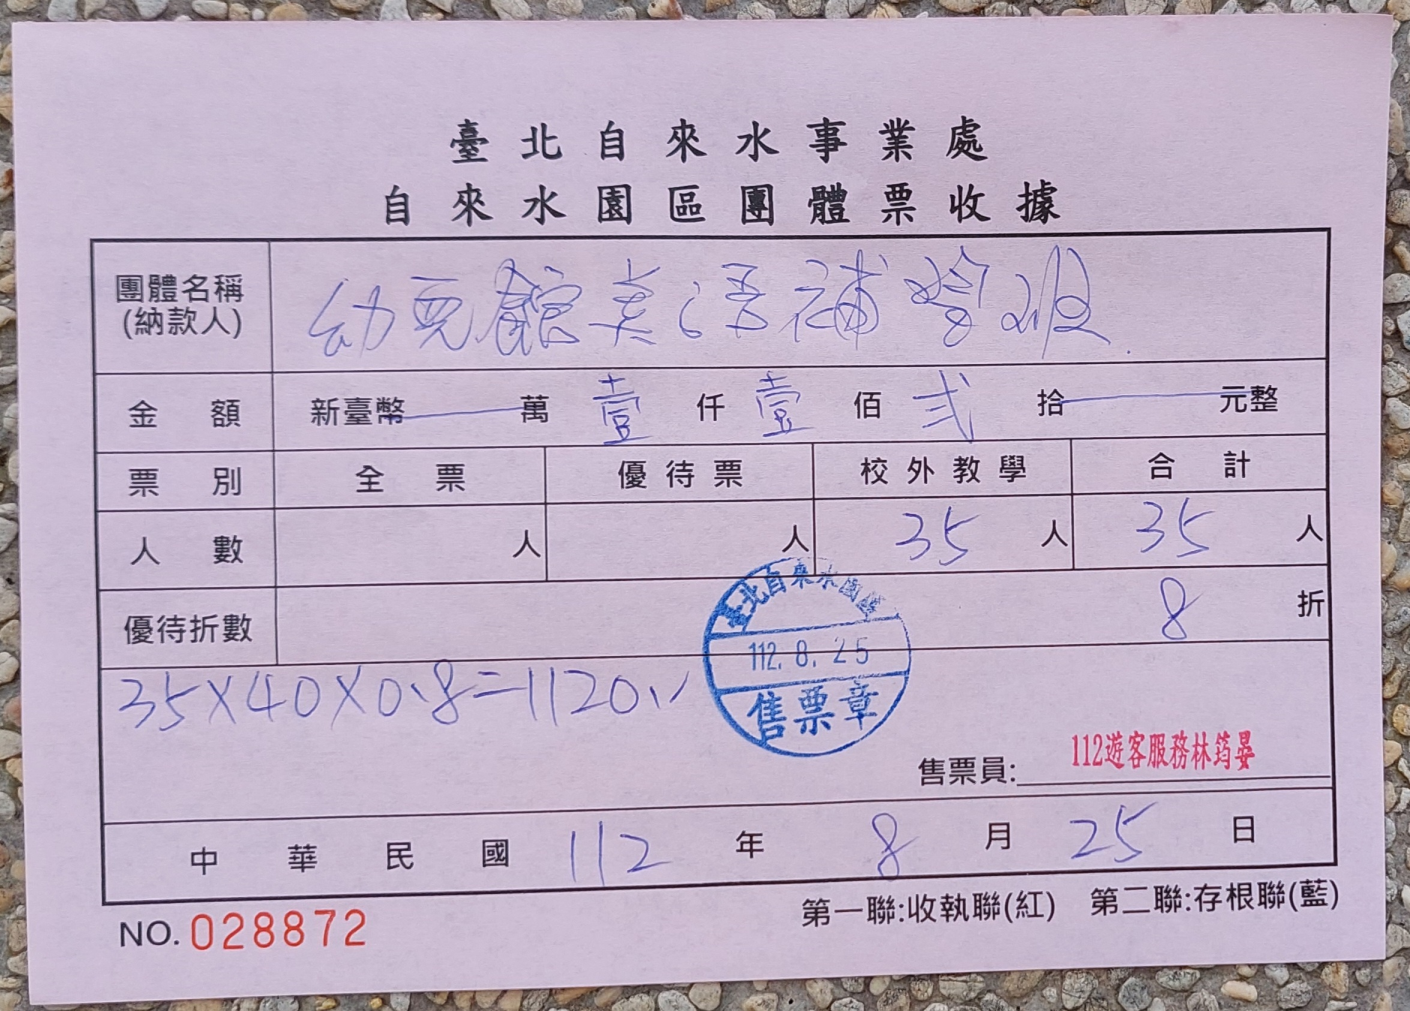 臺北自來水事業處
自來水園區團體票收據
團體名稱
(納款人)
幼兒館美語補習班
金額 新臺幣 萬 壹 仟 壹 佰 貳 拾 元整
票別 全票 優待票 校外教學 合計
人數 人 人 35 人 35 人
優待折數 8 折
臺北自來水園區
112.8.25
售票章
35×40×0.8=1120
售票員: 112遊客服務林筠晏
中華民國 112 年 8 月 25 日
NO. 028872
第一聯:收執聯(紅) 第二聯:存根聯(藍)